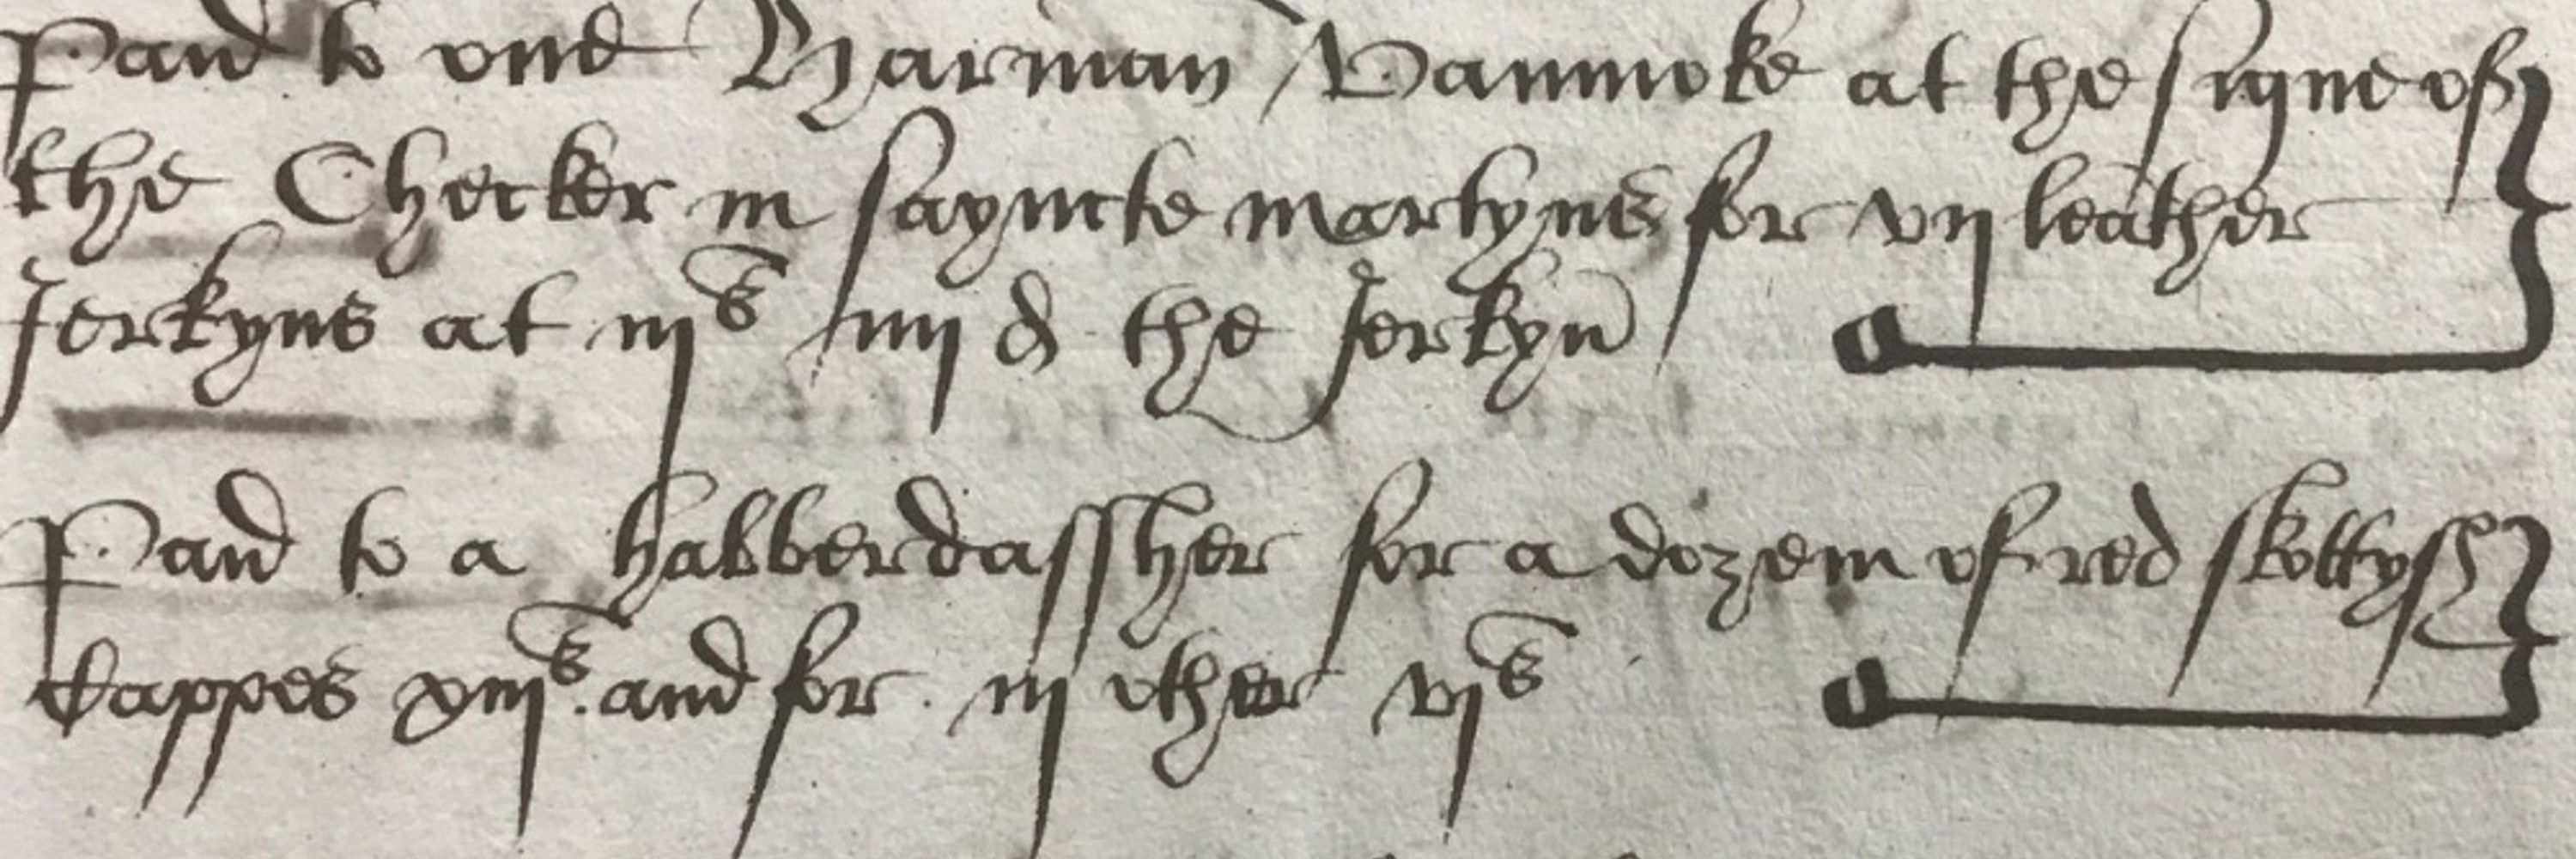 Paid to one Harman Vanmoke at the signe of
the Checker in sayncte martyns for vij leather
Jerkyns at iijs iiijd the Jerkyn
Paid to a habberdassher for a dozein of red skottysh
Cappes xiijs. and for. iij other vjs